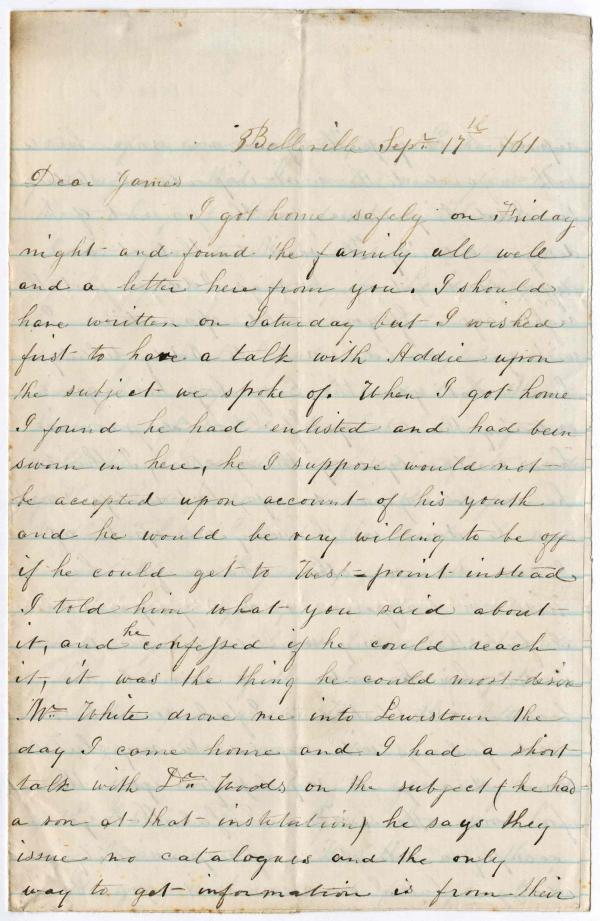 Belleville Sepr. 17th /61
Dear James
I got home safely on Friday
night and found the family all well
and a letter here from you. I should
have written on Saturday but I wished
first to have a talk with Addie upon
the subject we spoke of. When I got home
I found he had enlisted and had been
sworn in here, he I suppose would not
be accepted upon account of his youth
and he would be very willing to be off
if he could get to West-point instead
I told him what you said about
it, and he confessed if he could reach
it, it was the thing he could most desire
Mr. White drove me into Lewistown the
day I came home and I had a short
talk with Dr. Woods on the subject (he had
a son at that institution) he says they
issue no catalogues and the only
way to get information is from their